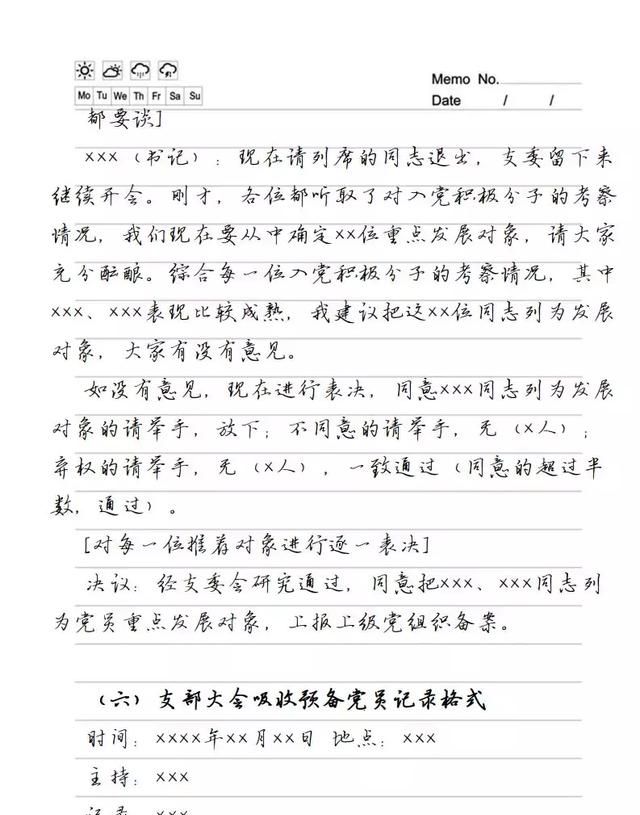 Memo No.
Mo Tu We Th Fr Sa Su
Date / /
都要谈]
×××（书记）：现在请列席的同志退出，支委留下来
继续开会。刚才，各位都听取了对入党积极分子的考察
情况，我们现在要从中确定××位重点发展对象，请大家
充分酝酿。综合每一位入党积极分子的考察情况，其中
×××、×××表现比较成熟，我建议把这××位同志列为发展
对象，大家有没有意见。
如没有意见，现在进行表决，同意×××同志列为发展
对象的请举手，放下；不同意的请举手，无（×人）；
弃权的请举手，无（×人），一致通过（同意的超过半
数，通过）。
[对每一位推荐对象进行逐一表决]
决议：经支委会研究通过，同意把×××、×××同志列
为党员重点发展对象，上报上级党组织备案。
（六）支部大会吸收预备党员记录格式
时间：××××年××月××日 地点：×××
主持：×××
记录：×××